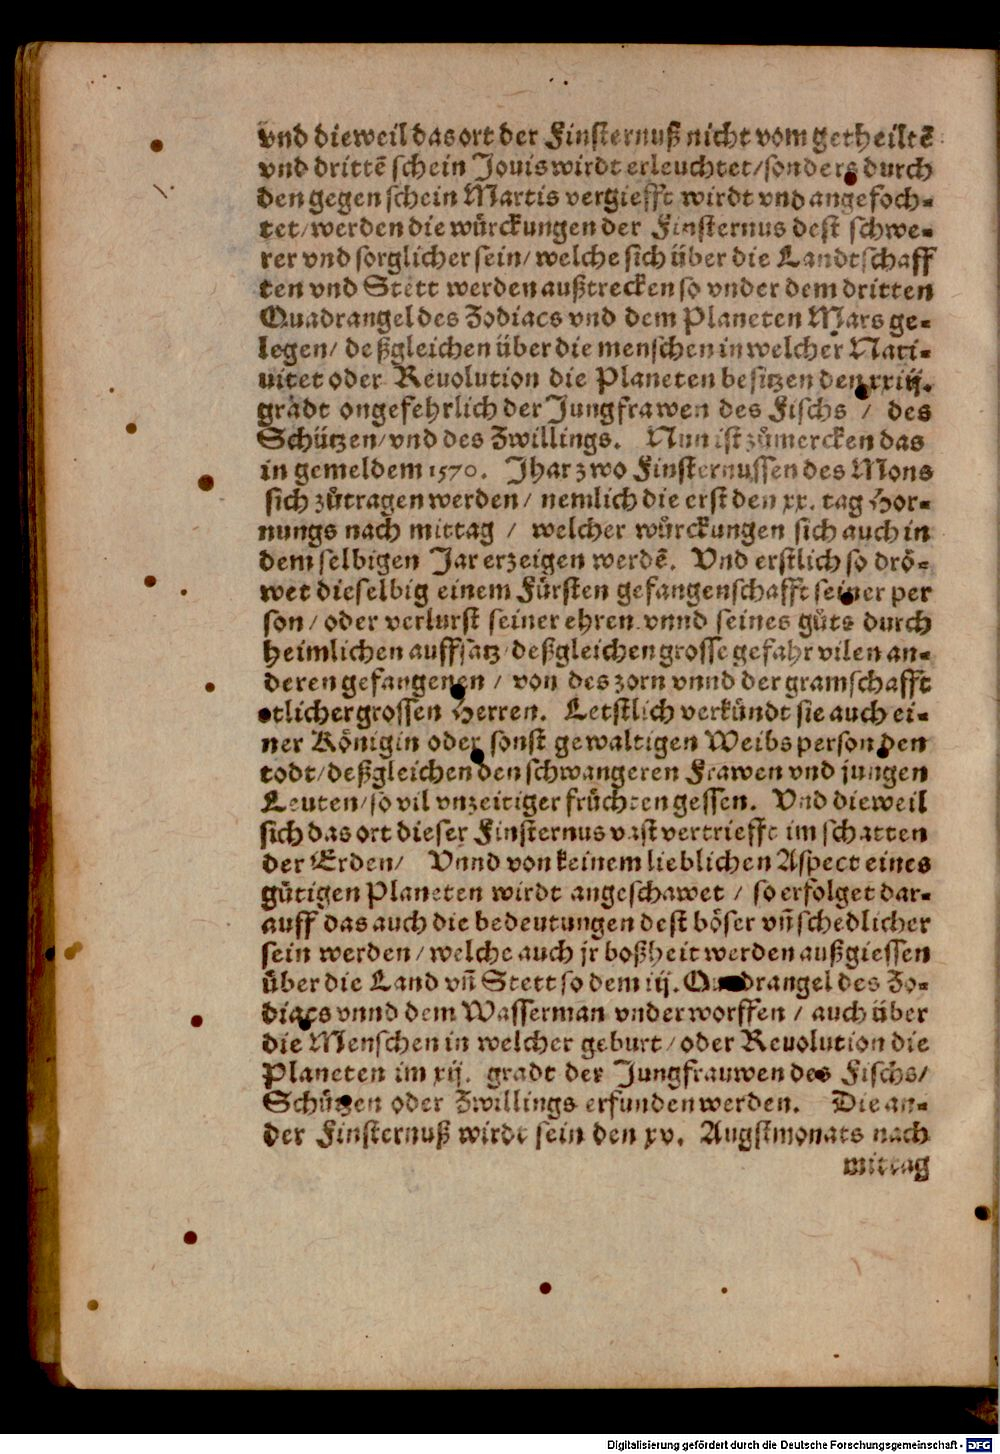 vnd dieweil das ort der Finsternuß nicht vom getheiltē
vnd drittē schein Jouis wirdt erleuchtet/ sonders durch
den gegen schein Martis vergiefft wirdt vnd angefoch-
tet/ werden die würckungen der Finsternus dest schwe-
rer vnd sorglicher sein/ welche sich über die Landtschaff
ten vnd Stett werden außtrecken so vnder dem dritten
Quadrangel des Zodiacs vnd dem Planeten Mars ge-
legen/ deßgleichen über die menschen in welcher Nati-
uitet oder Reuolution die Planeten besitzen den xxiij.
gradt ongefehrlich der Jungfrawen des Fischs / des
Schützen/ vnd des Zwillings. Nun ist zůmercken das
in gemeldem 1570. Jhar zwo Finsternussen des Mons
sich zůtragen werden/ nemlich die erst den xx. tag Hor-
nungs nach mittag / welcher würckungen sich auch in
dem selbigen Jar erzeigen werdē. Vnd erstlich so drö-
wet dieselbig einem Fürsten gefangenschafft seiner per
son/ oder verlurst seiner ehren vnnd seines gůts durch
heimlichen auffsatz/ deßgleichen grosse gefahr vilen an-
deren gefangenen / von des zorn vnnd der gramschafft
etlicher grossen Herren. Letstlich verkündt sie auch ei-
ner Königin oder sonst gewaltigen Weibs person den
todt/ deßgleichen den schwangeren Frawen vnd jungen
Leuten/ so vil vnzeitiger früchten gessen. Vnd dieweil
sich das ort dieser Finsternus vast vertriefft im schatten
der Erden/ Vnnd von keinem lieblichen Aspect eines
gütigen Planeten wirdt angeschawet / so erfolget dar-
auff das auch die bedeutungen dest böser vñ schedlicher
sein werden/ welche auch jr boßheit werden außgiessen
über die Land vñ Stett so dem iij. Quadrangel des Zo-
diacs vnnd dem Wasserman vnderworffen / auch über
die Menschen in welcher geburt/ oder Reuolution die
Planeten im xij. gradt der Jungfrauwen des Fischs/
Schützen oder Zwillings erfunden werden. Die an-
der Finsternuß wirdt sein den xv. Augstmonats nach
mittag
Digitalisierung gefördert durch die Deutsche Forschungsgemeinschaft - DFG